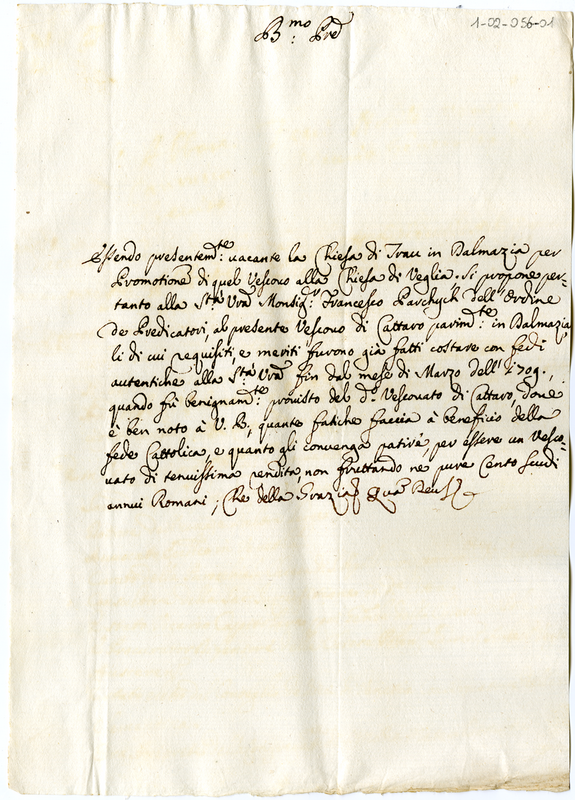 1-02-056-01
B.mo Pre
Essendo presentem.te: vacante la Chiesa di Trau in Dalmazia per
Promotione di quel Vescovo alla Chiesa di Veglia. Si propone per=
tanto alla S.tà Vrâ Monsig.r: Francesco Parchych dell'Ordine
de Predicatori, al presente Vescovo di Cattaro parim.te: in Dalmazia
li di cui requisiti, e meriti furono già fatti costare con fedi
autentiche alla S.tà Vrâ fin dal mese di Marzo dell' 1709.,
quando fù benignam.te: provisto del d.o Vescovato di Cattaro, dove
è ben noto à V. B., quante fatiche faccia à beneficio della
fede Cattolica, e quanto gli convenga patire, per essere un Vesco=
vato di tenuissima rendita, non fruttando ne pure Cento scudi
annui Romani; Che della Grazia Quà Deus